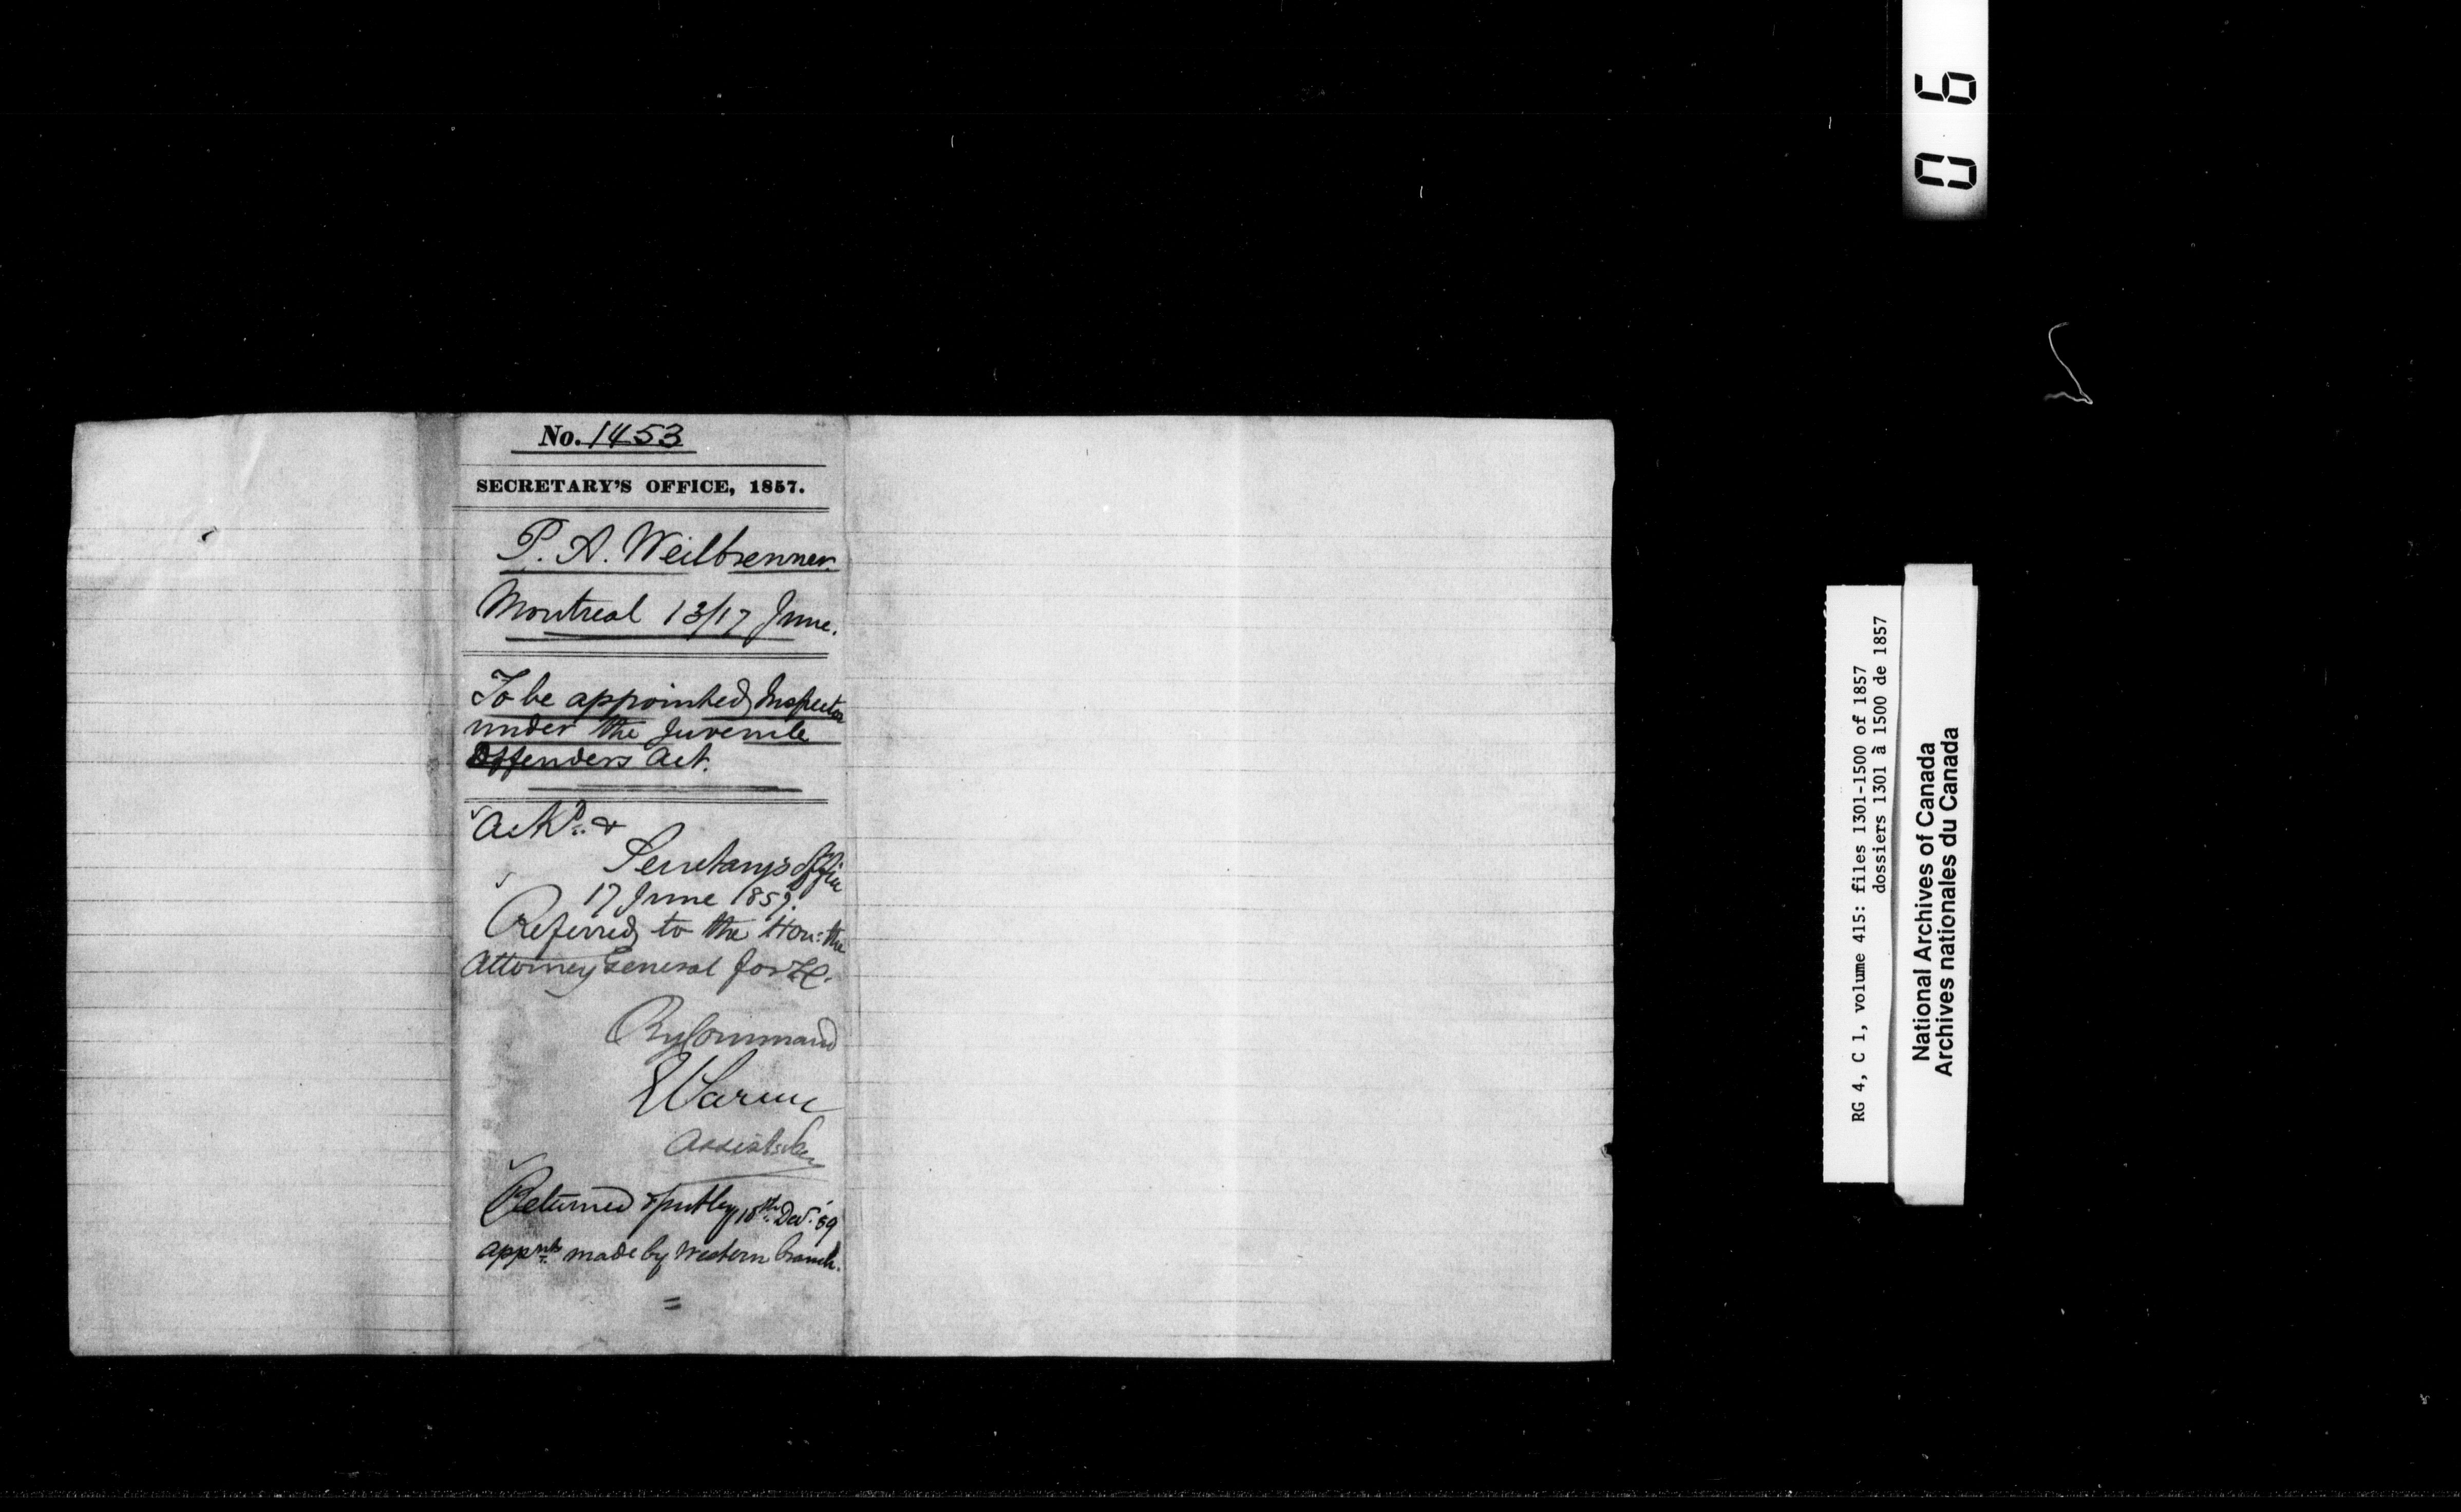 No. 1453
SECRETARY'S OFFICE, 1857.
P. A. Weilbrenner
Montreal 13/17 June.
To be appointed Inspector
under the Juvenile
Offenders Act.
Ackd. &
Secretary's Office
17 June 1857.
Referred to the Hon: the
Attorney General for LC.
By Command
Assist Secy
Returned & put by 15th Decr. '59
appnts made by Western branch.
06
RG 4, C 1, volume 415: files 1301-1500 of 1857
dossiers 1301 à 1500 de 1857
National Archives of Canada
Archives nationales du Canada